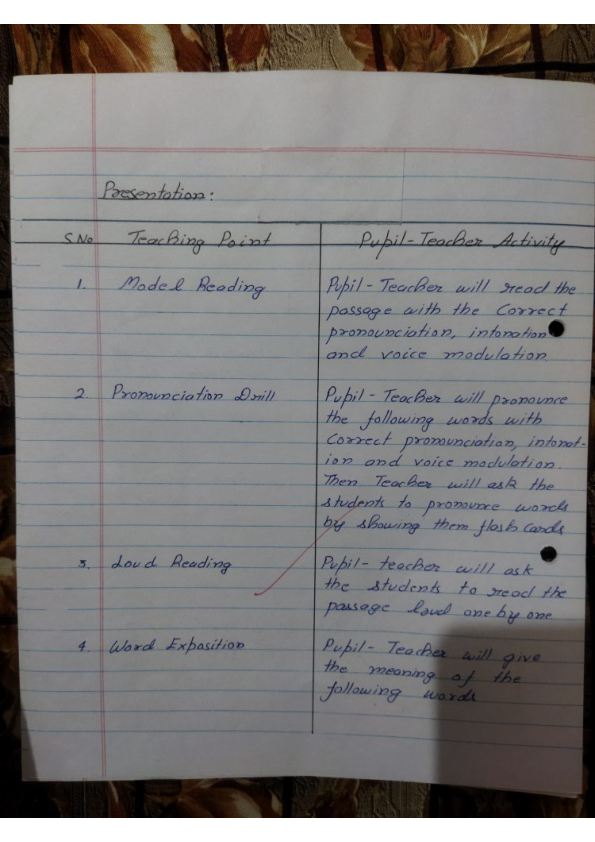 Presentation:
S.No Teaching Point Pupil-Teacher Activity
1. Model Reading Pupil-Teacher will read the
passage with the correct
pronounciation, intonation
and voice modulation
2. Pronounciation Drill Pupil-Teacher will pronounce
the following words with
correct pronounciation, intonat-
ion and voice modulation.
Then Teacher will ask the
students to pronounce words
by showing them flash cards
3. Loud Reading Pupil-teacher will ask
the students to read the
passage loud one by one
4. Word Exposition Pupil-Teacher will give
the meaning of the
following words